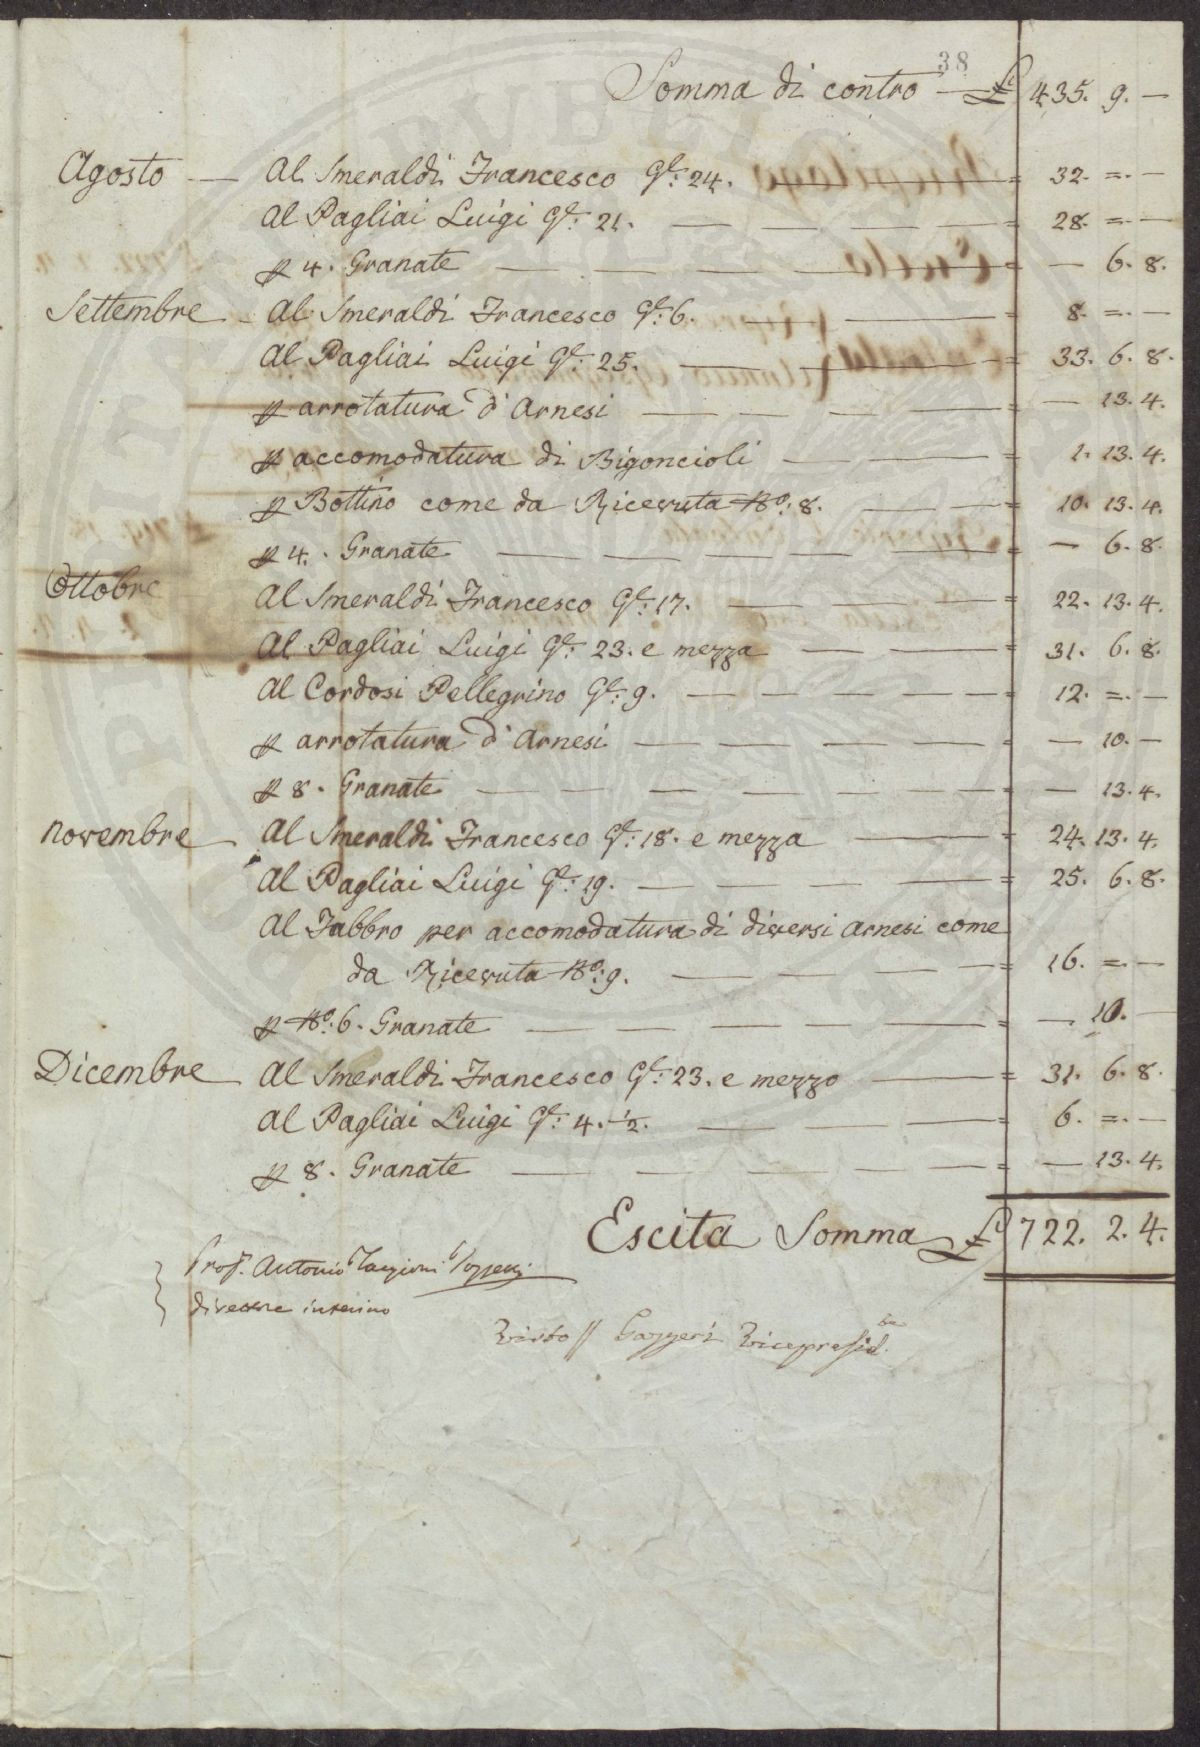 38
Somma di contro — £ 435. 9. —
Agosto — Al Smeraldi Francesco Ge: 24. = 32. =. —
Al Pagliai Luigi Ge: 21. — — — — 28. =. —
p 4. Granate — — — — = — 6. 8.
Settembre — Al Smeraldi Francesco Ge: 6. — — = 8. =. —
Al Pagliai Luigi Ge: 25. — — — = 33. 6. 8.
p arrotatura d'Arnesi — — — — = — 13. 4.
p accomodatura di Bigoncioli — — = 1. 13. 4.
p Bottino come da Ricevuta No: 8. — — = 10. 13. 4.
p 4. Granate — — — — — = — 6. 8.
Ottobre Al Smeraldi Francesco Ge: 17. — — — = 22. 13. 4.
Al Pagliai Luigi Ge: 23. e mezza — — = 31. 6. 8.
Al Cordosi Pellegrino Ge: 9. — — — — = 12. =. —
p arrotatura d'Arnesi — — — — = — 10. —
p 8. Granate — — — — — — = — 13. 4.
Novembre — Al Smeraldi Francesco Ge: 18. e mezza — = 24. 13. 4.
Al Pagliai Luigi Ge: 19. — — — — = 25. 6. 8.
Al Fabbro per accomodatura di diversi Arnesi come
da Ricevuta No: 9. — — — — = 16. =. —
p No: 6. Granate — — — — — = — 10. —
Dicembre — Al Smeraldi Francesco Ge: 23. e mezzo — = 31. 6. 8.
Al Pagliai Luigi Ge: 4. ½. — — — = 6. =. —
p 8. Granate — — — — = — 13. 4.
Escita Somma £ 722. 2. 4.
Prof. Antonio Targioni Tozzetti
direttore interino
Visto // Gazzeri Vicepresid.te